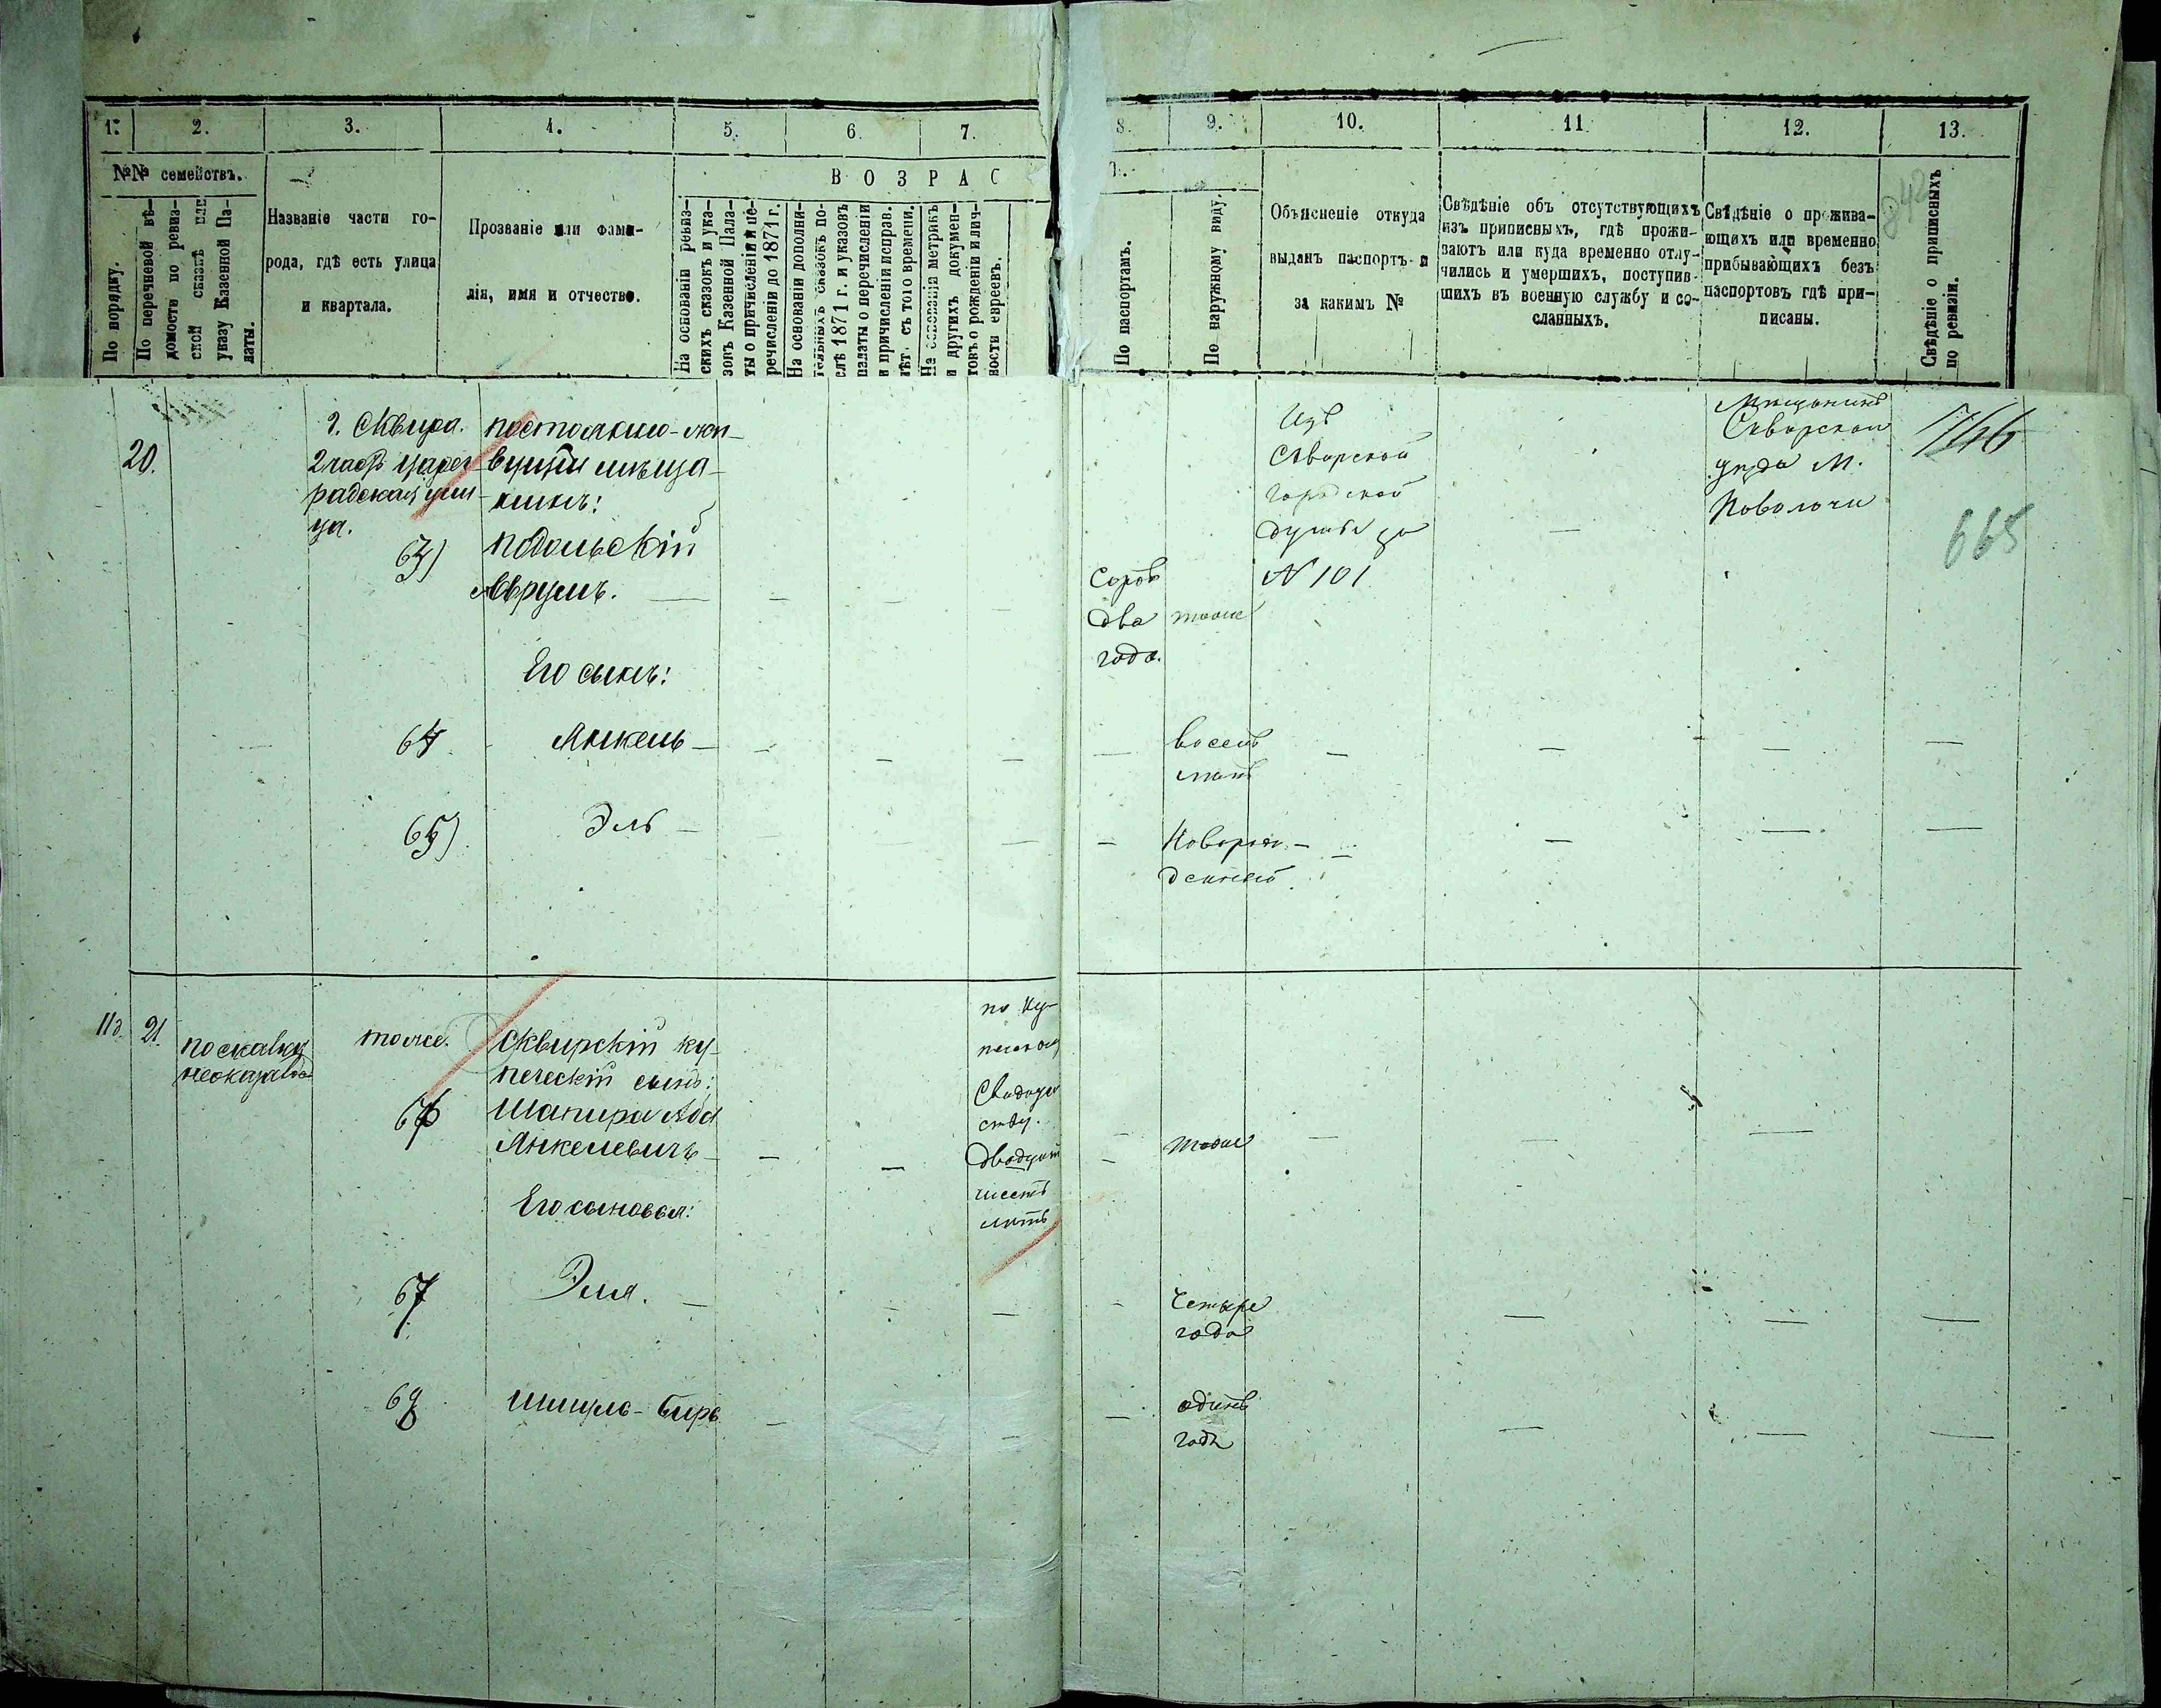 1. 2. 3. 4. 5. 6. 7. 8. 9. 10. 11. 12. 13.
№№ семействъ.
По порядку.
По перечневой вѣ-
домости по ревиз-
ской сказкѣ или
указу Казенной Па-
латы.
Названіе части го-
рода, гдѣ есть улица
и квартала.
Прозваніе или фами-
лія, имя и отчество.
ВОЗРАС
Т.
На основаніи ревиз-
скихъ сказокъ и ука-
зовъ Казенной Пала-
ты о причисленіи и пе-
речисленіи до 1871 г.
На основаніи дополни-
тельныхъ сказокъ по-
слѣ 1871 г. и указовъ
палаты о перечисленіи
и причисленіи исправ.
лѣт. съ того времени.
На основаніи метрикъ
и других документ-
товъ о рожденіи и лич-
ности евреевъ.
По паспортамъ.
По наружному виду.
Объясненіе откуда
выданъ паспортъ и
за какимъ №
Свѣдѣніе объ отсутствующихъ
изъ приписныхъ, гдѣ прожи-
ваютъ или куда временно отлу-
чились и умершихъ, поступив-
шихъ въ военную службу и со-
сланныхъ.
Свѣдѣніе о прожива-
ющихъ или временно
прибывающихъ безъ
паспортовъ гдѣ при-
писаны.
Свѣдѣніе о приписныхъ
по ревизіи.
20.
г. Сквира.
2 часть Царег-
радская ули-
ца.
постоянно-жи-
вущій мѣща-
нинъ:
63) Подольскій
Аврумъ.
Сорокъ
два
года.
тоже
Изъ
Сквирской
городской
думы за
N 101
Мѣщанинъ
Сквирскаго
уѣзда м.
Паволочи
746
665
Его сынъ:
64 Янкель
восемь
лѣтъ
65) Эль
Новорож-
денный
11д. 21.
по сказкѣ
не оказалось
тоже.
Сквирскій ку-
печескій сынъ:
66 Шапира Аба
Янкелевичъ
по ку-
печеском
Свидетел
ству.
двадцать
шесть
лѣтъ
тоже
Его сыновья:
67 Эля.
Четыре
года
68 Шмуль-Беръ
одинъ
годъ